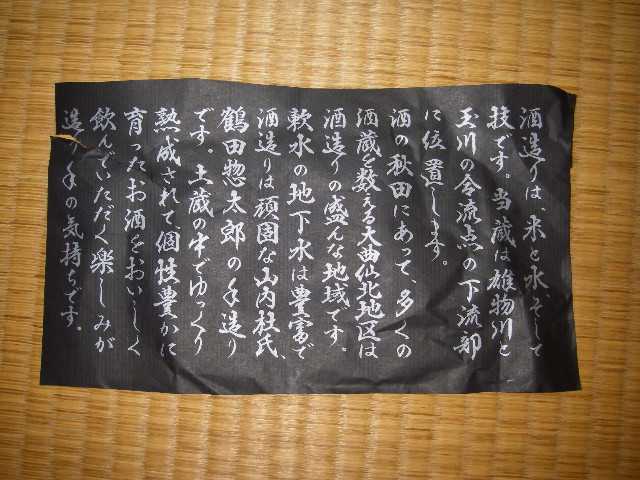 酒造りは、米と水、そして
技です。当蔵は雄物川と
玉川の合流点の下流部
に位置します。
酒の秋田にあって、多くの
酒蔵を数える大曲仙北地区は
酒造りの盛んな地域です。
軟水の地下水は豊富で
酒造りは頑固な山内杜氏、
鶴田惣太郎の手造り
です。土蔵の中でゆっくり
熟成されて、個性豊かに
育ったお酒をおいしく
飲んでいただく楽しみが
造り手の気持ちです。